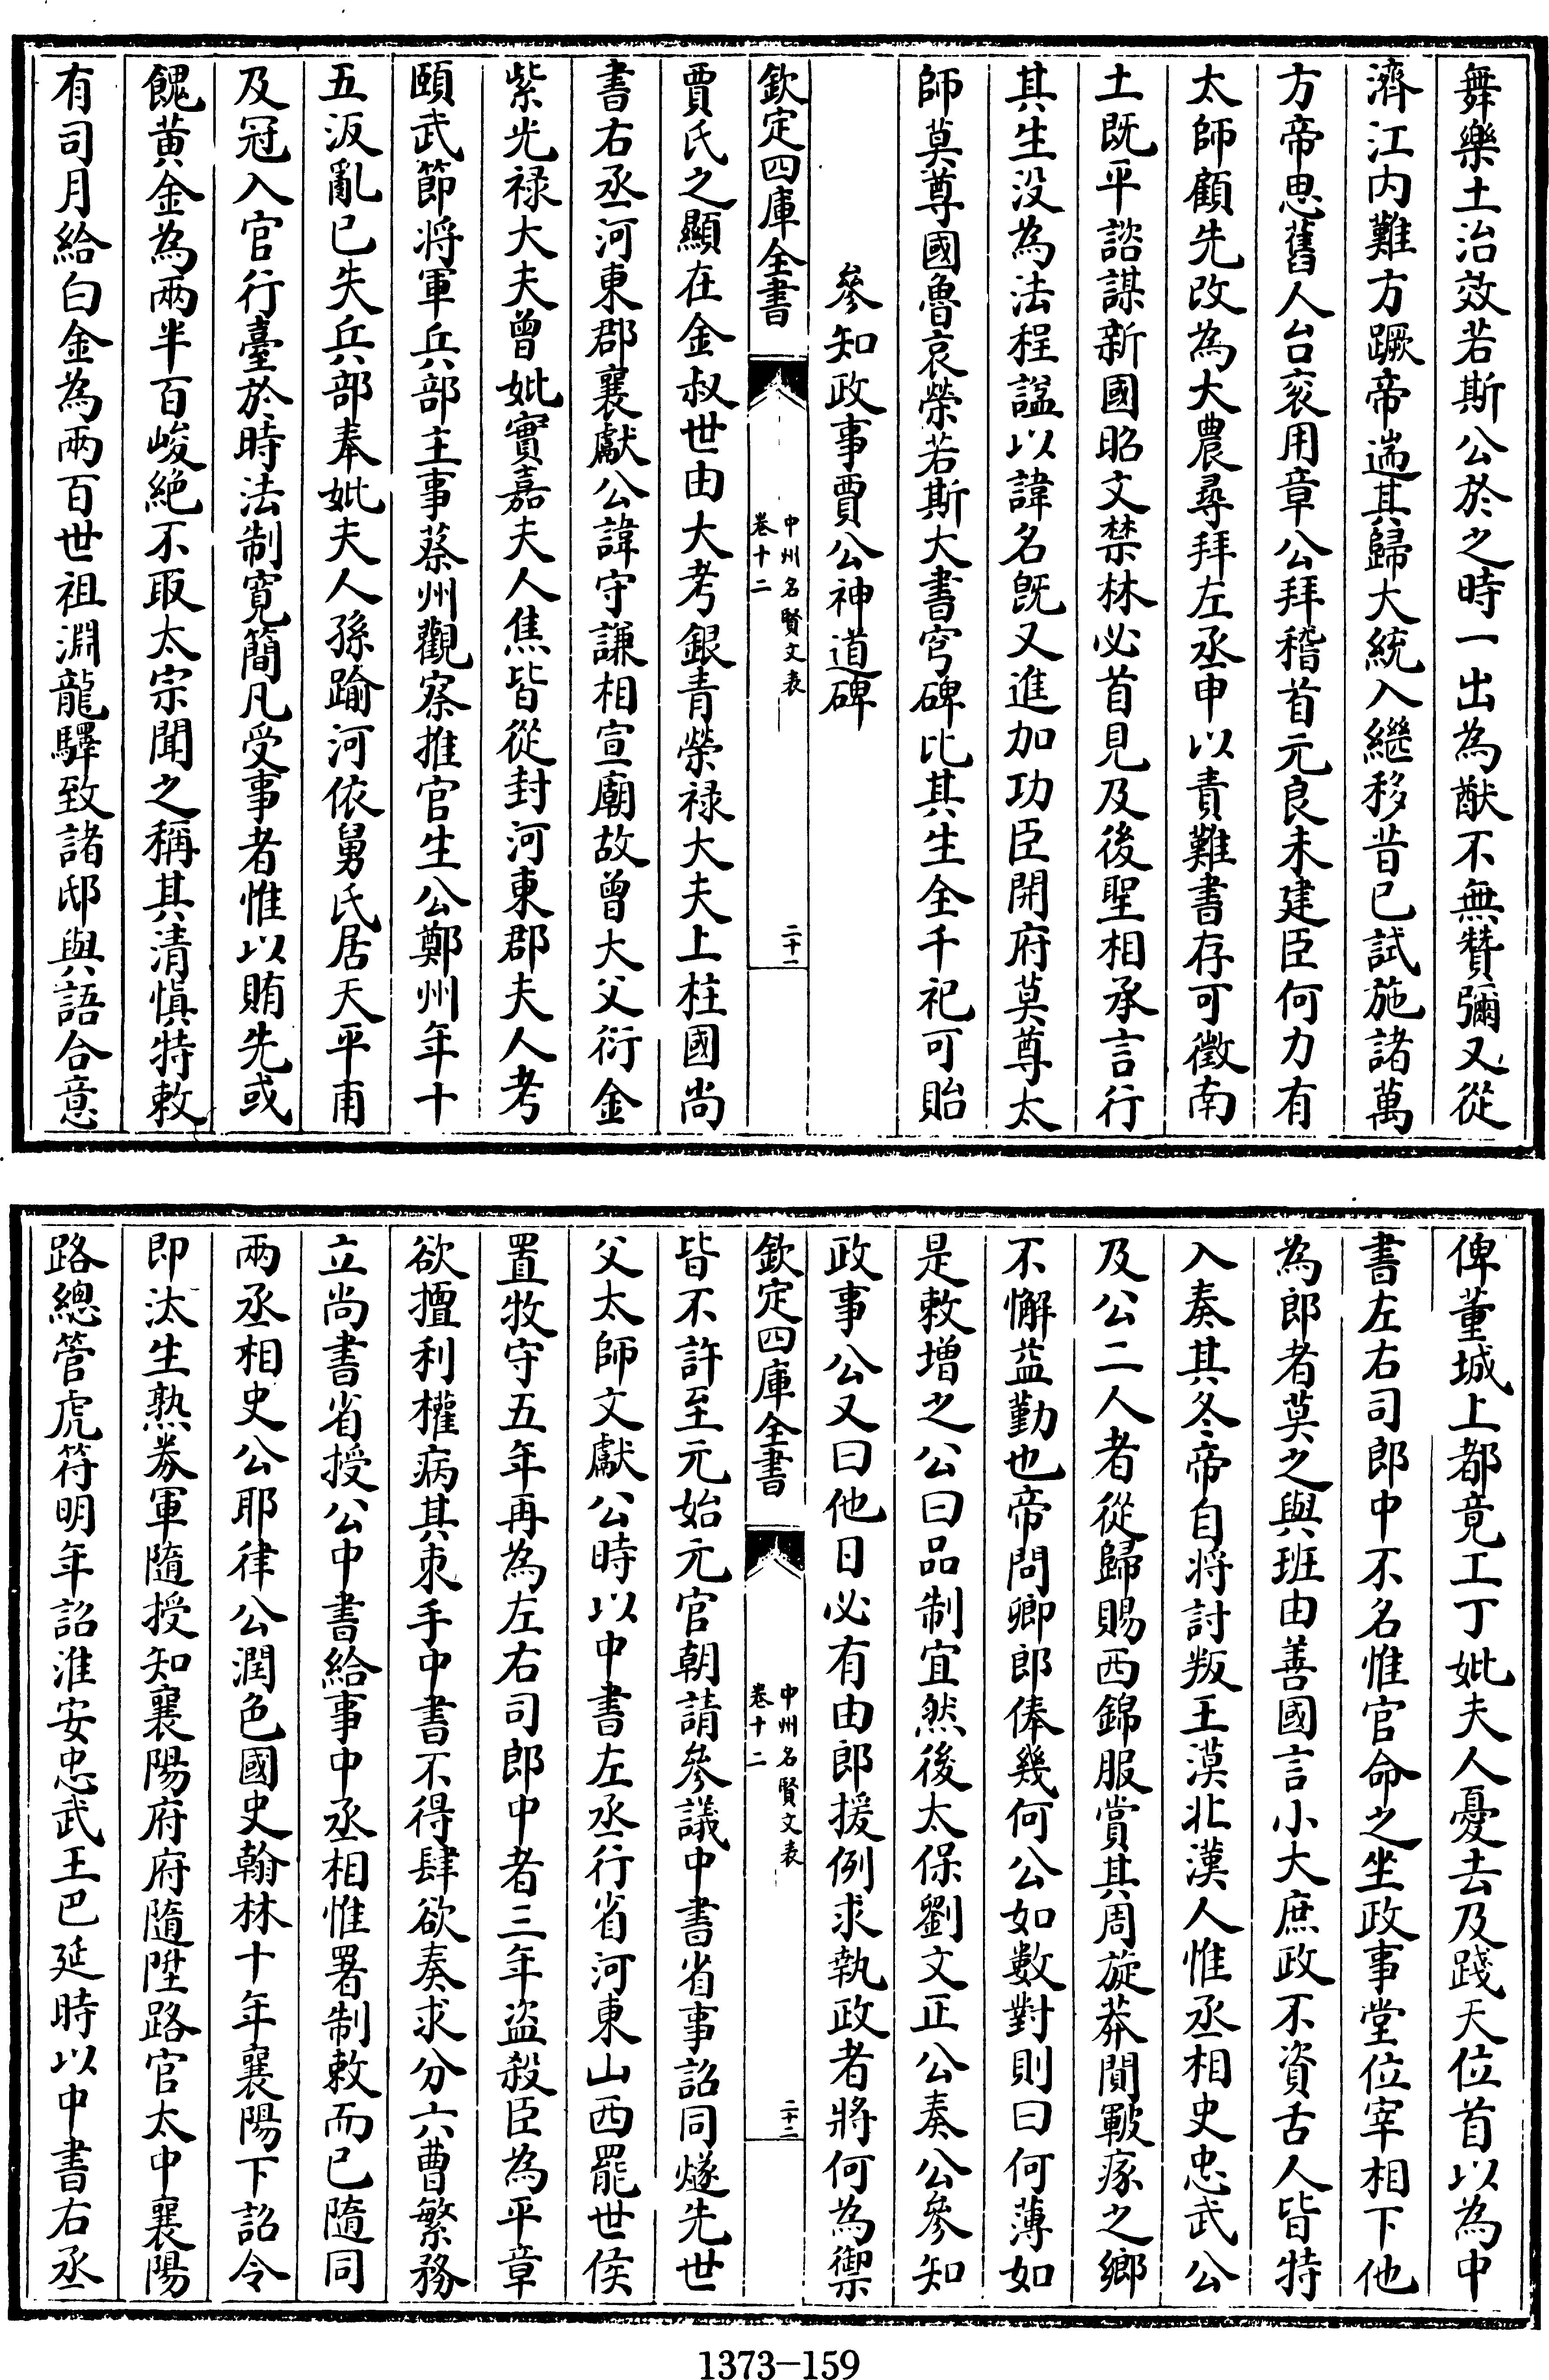 舞樂土治效若斯公於之時一出為猷不無贊彌又從
濟江内難方蹶帝遄其歸大統入繼移昔已試施諸萬
方帝思舊人台衮用章公拜稽首元良未建臣何力有
太師顧先改為大農尋拜左丞申以責難書存可徵南
土既平諮謀新國昭文禁林必首見及後聖相承言行
其生没為法程諡以諱名旣又進加功臣開府莫尊太
師莫尊國魯哀榮若斯大書穹碑比其生全千祀可貽
參知政事賈公神道碑
欽定四庫全書
中州名賢文表
卷十二
二十一
賈氏之顯在金叔世由大考銀青榮禄大夫上柱國尚
書右丞河東郡襄獻公諱守謙相宣廟故曾大父衍金
紫光禄大夫曾妣實嘉夫人焦皆從封河東郡夫人考
頤武節将軍兵部主事蔡州觀察推官生公鄭州年十
五汳亂已失兵部奉妣夫人孫踰河依舅氏居天平甫
及冠入官行臺於時法制寛簡凡受事者惟以賄先或
餽黄金為兩半百峻絶不取太宗聞之稱其清慎特敕
有司月給白金為兩百世祖淵龍驛致諸邸與語合意
俾董城上都竟工丁妣夫人憂去及踐天位首以為中
書左右司郎中不名惟官命之坐政事堂位宰相下他
為郎者莫之與班由善國言小大庶政不資舌人皆特
入奏其冬帝自将討叛王漠北漢人惟丞相史忠武公
及公二人者從歸賜西錦服賞其周旋莽閒皸瘃之鄉
不懈益勤也帝問卿郎俸幾何公如數對則曰何薄如
是敕增之公曰品制宜然後太保劉文正公奏公參知
政事公又曰他日必有由郎援例求執政者將何為禦
欽定四庫全書
中州名賢文表
卷十二
二十二
皆不許至元始元官朝請參議中書省事詔同燧先世
父太師文獻公時以中書左丞行省河東山西罷世侯
置牧守五年再為左右司郎中者三年盜殺臣為平章
欲擅利權病其束手中書不得肆欲奏求分六曹繁務
立尚書省授公中書給事中丞相惟署制敕而已隨同
兩丞相史公耶律公潤色國史翰林十年襄陽下詔令
即汰生熟券軍隨授知襄陽府府隨陞路官太中襄陽
路總管虎符明年詔淮安忠武王巴延時以中書右丞
1373—159